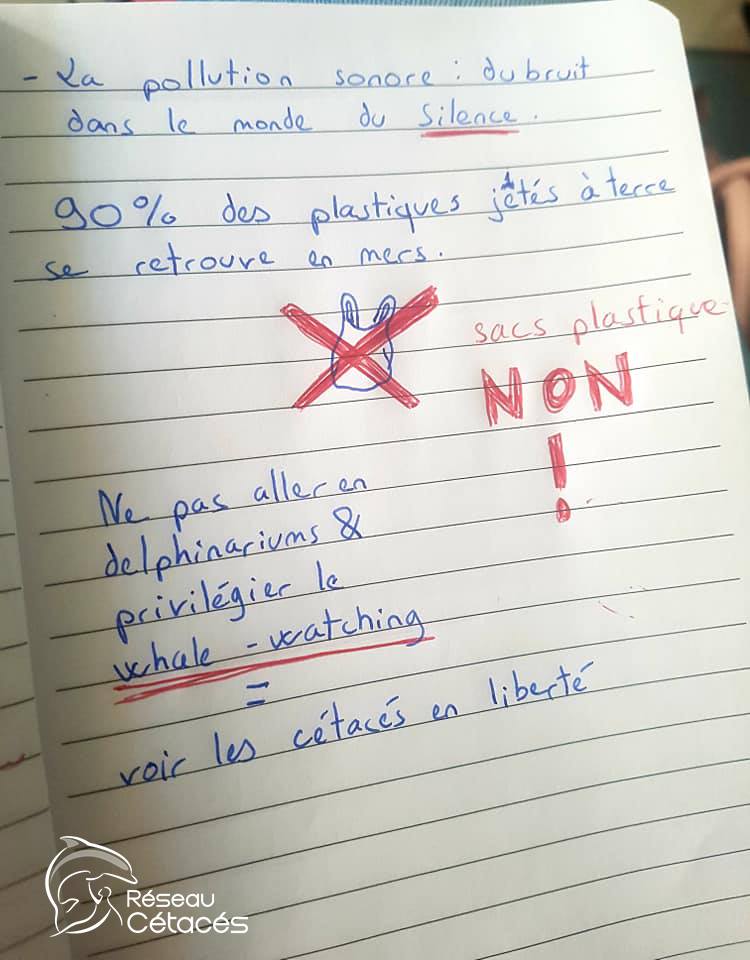 - La pollution sonore : du bruit
dans le monde du silence.
90% des plastiques jetés à terre
se retrouve en mers.
sacs plastique
NON
!
Ne pas aller en
delphinariums &
privilégier le
whale-watching
=
voir les cétacés en liberté
Réseau
Cétacés